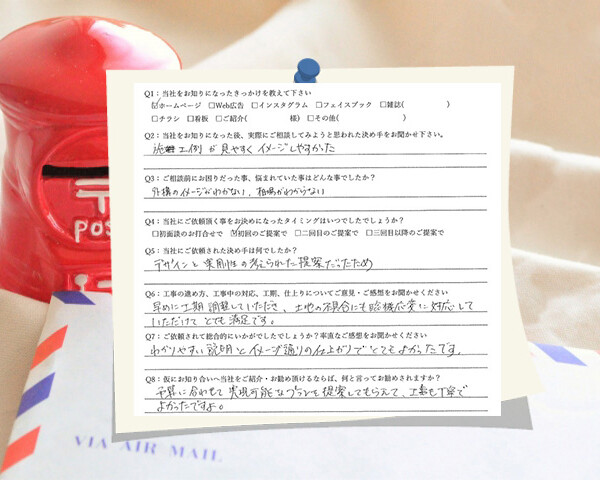 Q1：当社をお知りになったきっかけを教えて下さい
☑ホームページ □Web広告 □インスタグラム □フェイスブック □雑誌( )
□チラシ □看板 □ご紹介( 様) □その他( )
Q2：当社をお知りになった後、実際にご相談してみようと思われた決め手をお聞かせ下さい。
施工例が見やすくイメージしやすかった
Q3：ご相談前にお困りだった事、悩まれていた事はどんな事でしたか？
外構のイメージがわかない、相場がわからない
Q4：当社にご依頼頂く事をお決めになったタイミングはいつでしたでしょうか？
□初面談のお打合せで ☑初回のご提案で □二回目のご提案で □三回目以降のご提案で
Q5：当社にご依頼された決め手は何でしたか？
デザインと実用性の考えられた提案だったため
Q6：工事の進め方、工事中の対応、工期、仕上りについてご意見・ご感想をお聞かせください
早めに工期調整していただき、土地の不具合にも臨機応変に対応して
いただけてとても満足です。
Q7：ご依頼されて総合的にいかがでしたでしょうか？率直なご感想をお聞かせください
わかりやすい説明とイメージ通りの仕上がりでとてもよかったです。
Q8：仮にお知り合いへ当社をご紹介・お勧め頂けるならば、何と言ってお勧めされますか？
予算に合わせて実現可能なプランを提案してもらえて、工事も丁寧で
よかったですよ。
〒
POS
VIA AIR MAIL